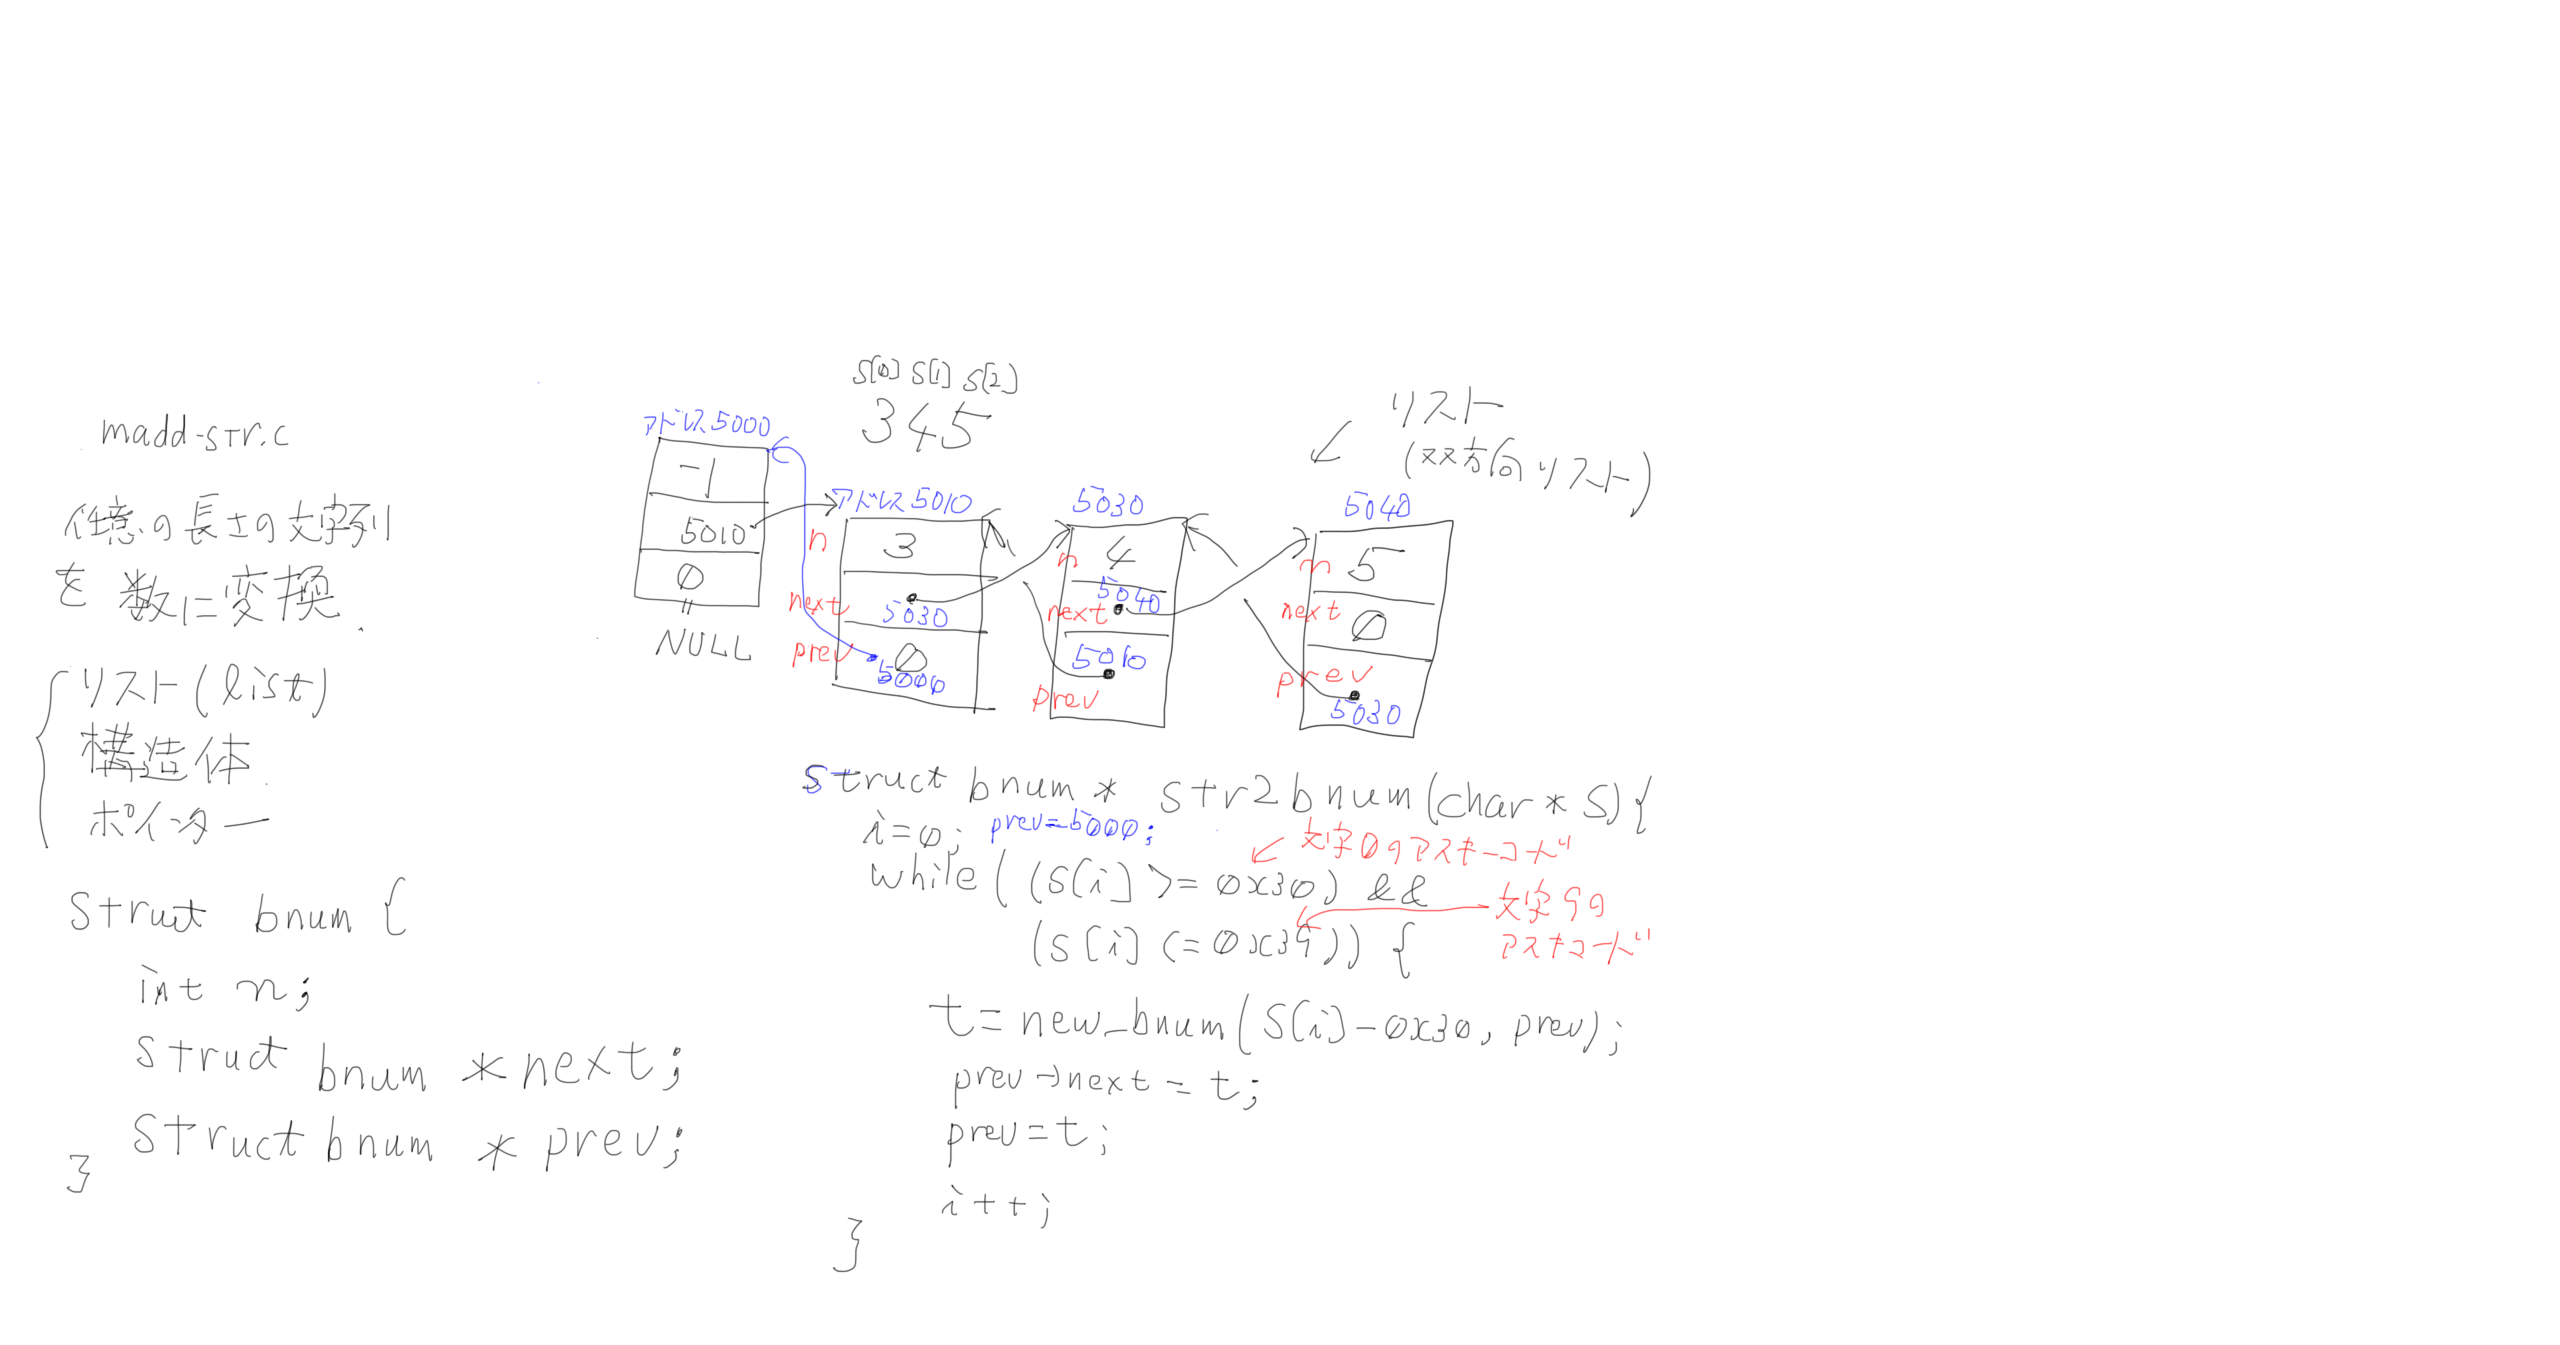 madd-str.c
任意の長さの文字列
を数に変換.
リスト(list)
構造体
ポインター
struct bnum {
int n;
struct bnum *next;
struct bnum *prev;
}
S[0] S[1] S[2]
345
アドレス5000
-1
5010
0
NULL
アドレス5010
n
3
next
5030
prev
0
5000
5030
n
4
5040
next
5010
prev
リスト
(双方向リスト)
5040
n
5
next
0
prev
5030
struct bnum * str2bnum(char * S){
i=0; prev=5000;
文字0のアスキーコード
while( (S[i] >= 0x30) &&
文字9の
アスキコード
(S[i] <= 0x39)) {
t=new_bnum(S[i]-0x30, prev);
prev→next = t;
prev=t;
i++;
}